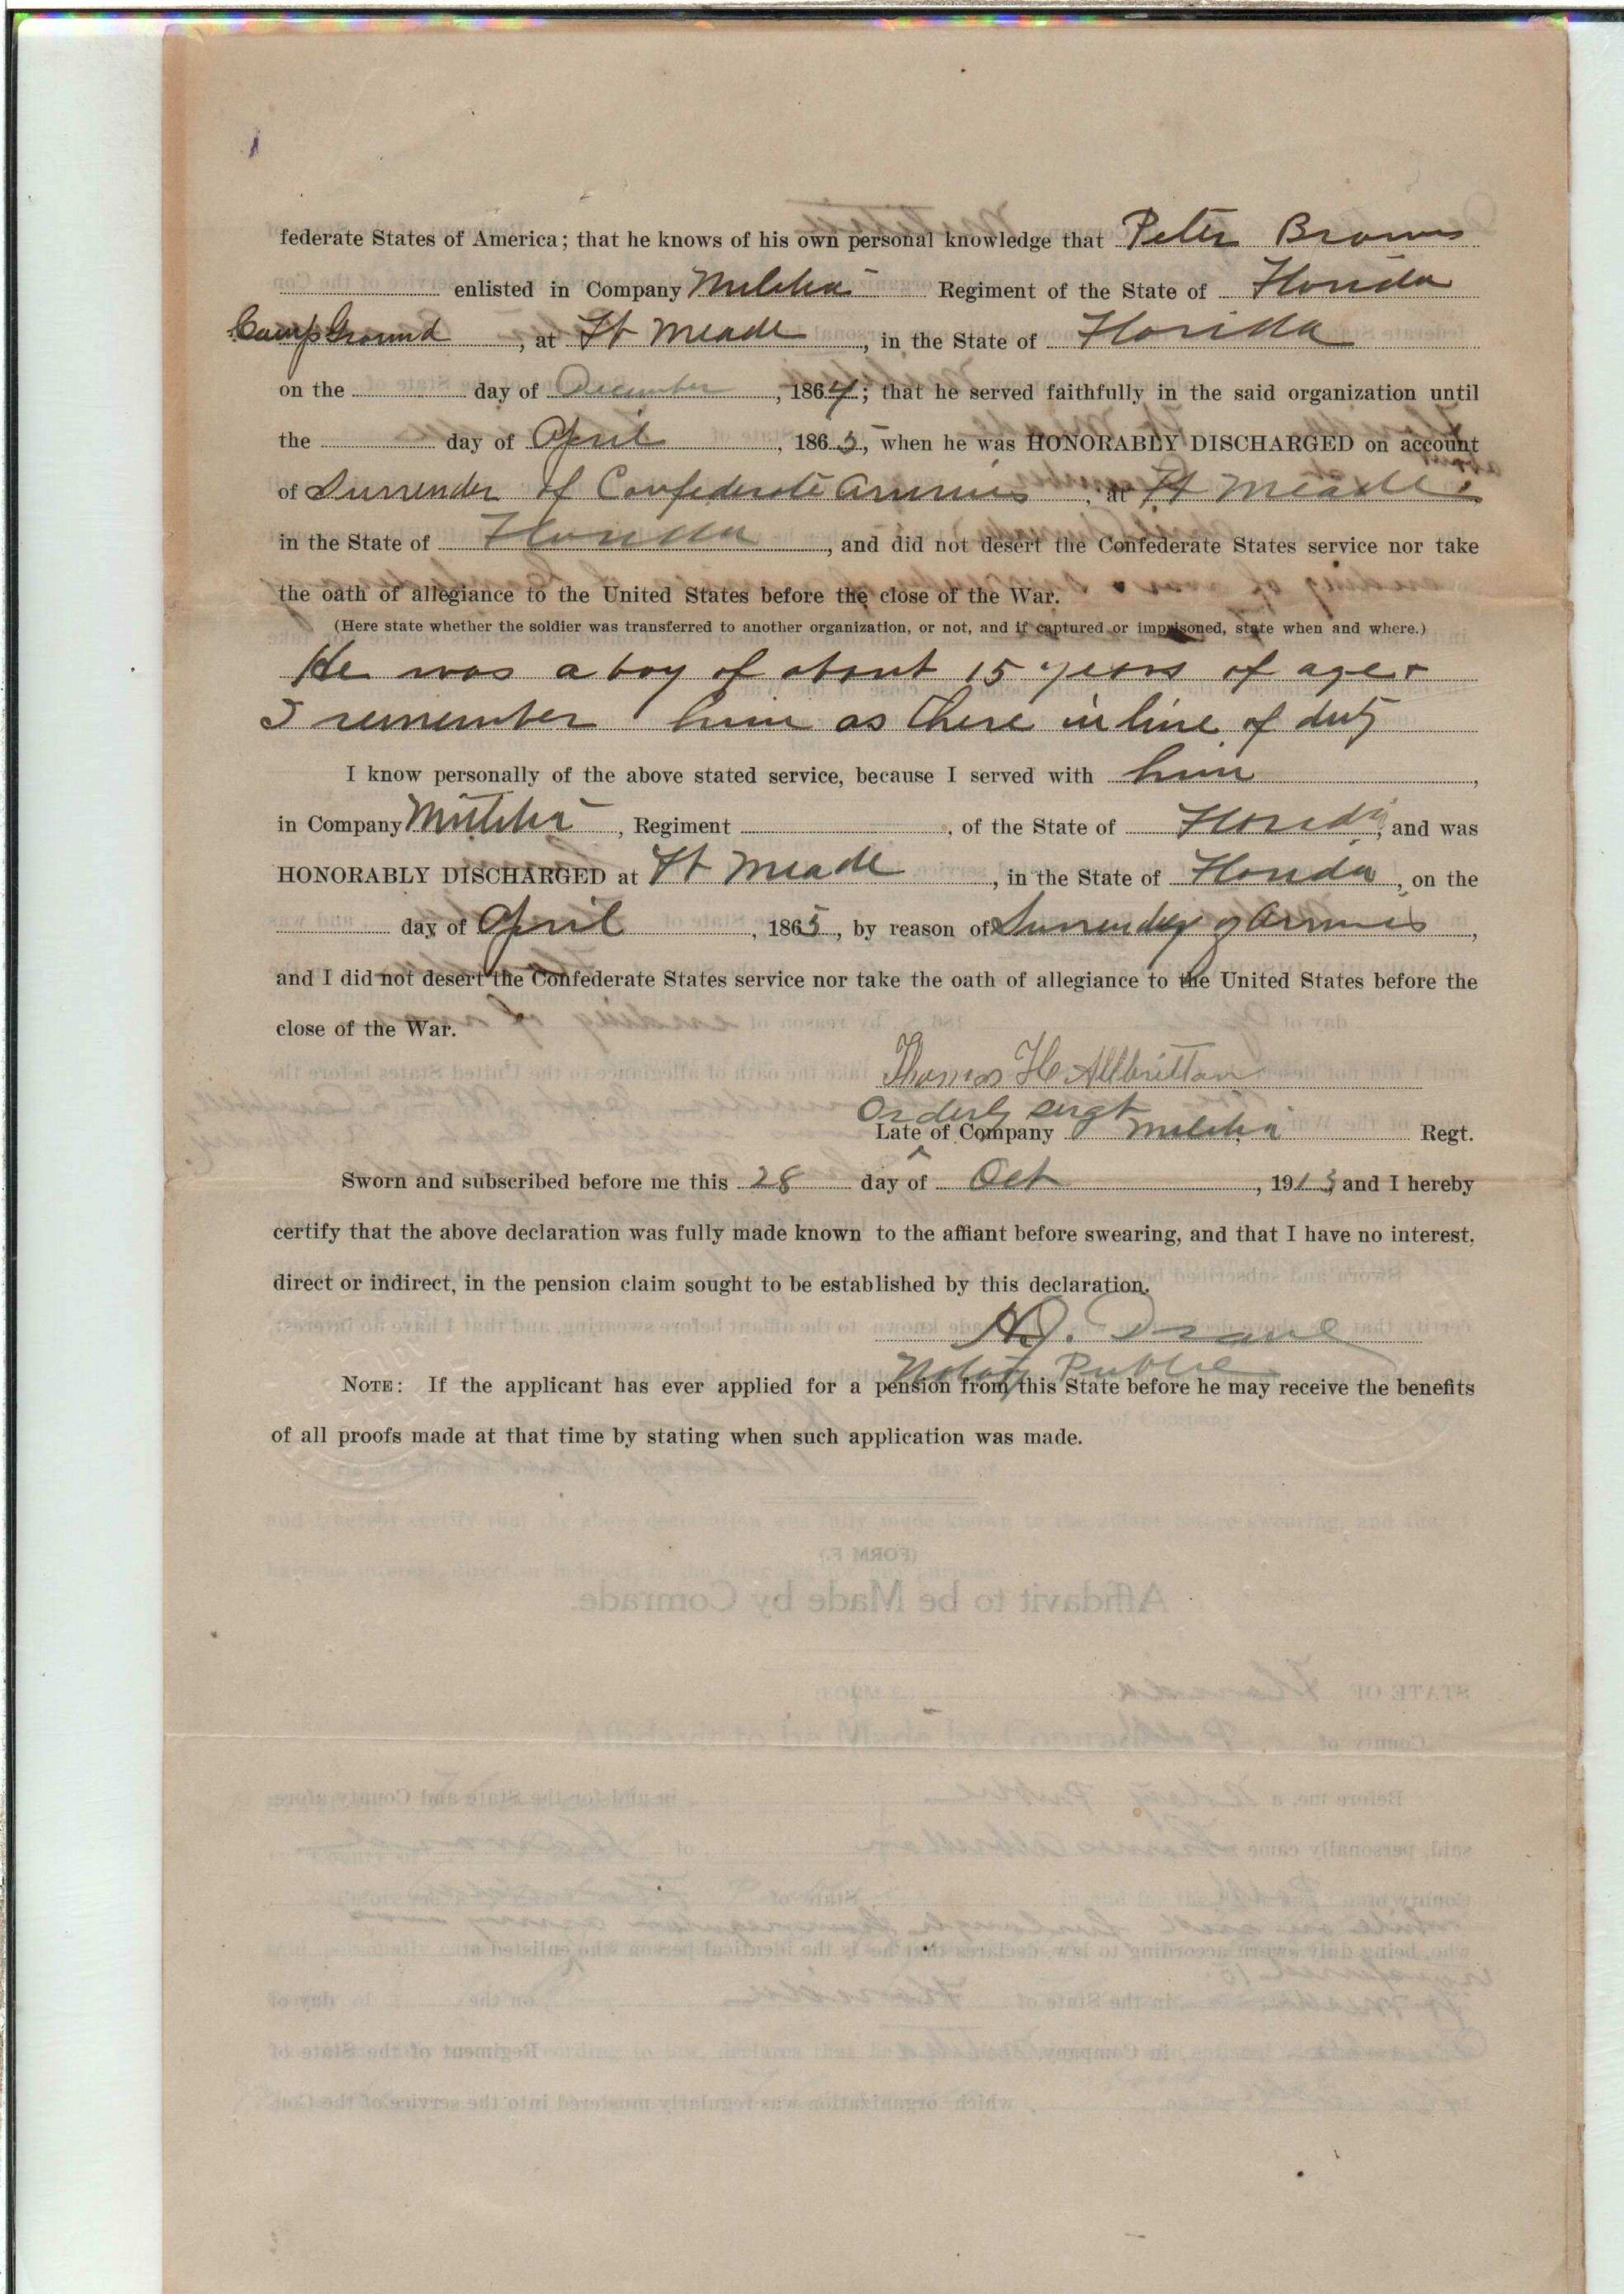 federate States of America; that he knows of his own personal knowledge that Peter Brown
enlisted in Company Militia Regiment of the State of Florida
Camp Ground, at Ft Meade, in the State of Florida
on the day of December, 1864; that he served faithfully in the said organization until
the day of April, 1865, when he was HONORABLY DISCHARGED on account
of Surrender of Confederate Armies, at Ft Meade
in the State of Florida, and did not desert the Confederate States service nor take
the oath of allegiance to the United States before the close of the War.
(Here state whether the soldier was transferred to another organization, or not, and if captured or imprisoned, state when and where.)
He was a boy of about 15 years of age +
I remember him as there in line of duty
I know personally of the above stated service, because I served with him,
in Company Militia, Regiment, of the State of Florida, and was
HONORABLY DISCHARGED at Ft Meade, in the State of Florida, on the
day of April, 1865, by reason of Surrender of Armies,
and I did not desert the Confederate States service nor take the oath of allegiance to the United States before the
close of the War.
Thomas H Albritton
Orderly Sergt
Late of Company Militia Regt.
Sworn and subscribed before me this 28 day of Oct, 1913, and I hereby
certify that the above declaration was fully made known to the affiant before swearing, and that I have no interest,
direct or indirect, in the pension claim sought to be established by this declaration.
H.J. Drane
Notary Public
NOTE: If the applicant has ever applied for a pension from this State before he may receive the benefits
of all proofs made at that time by stating when such application was made.